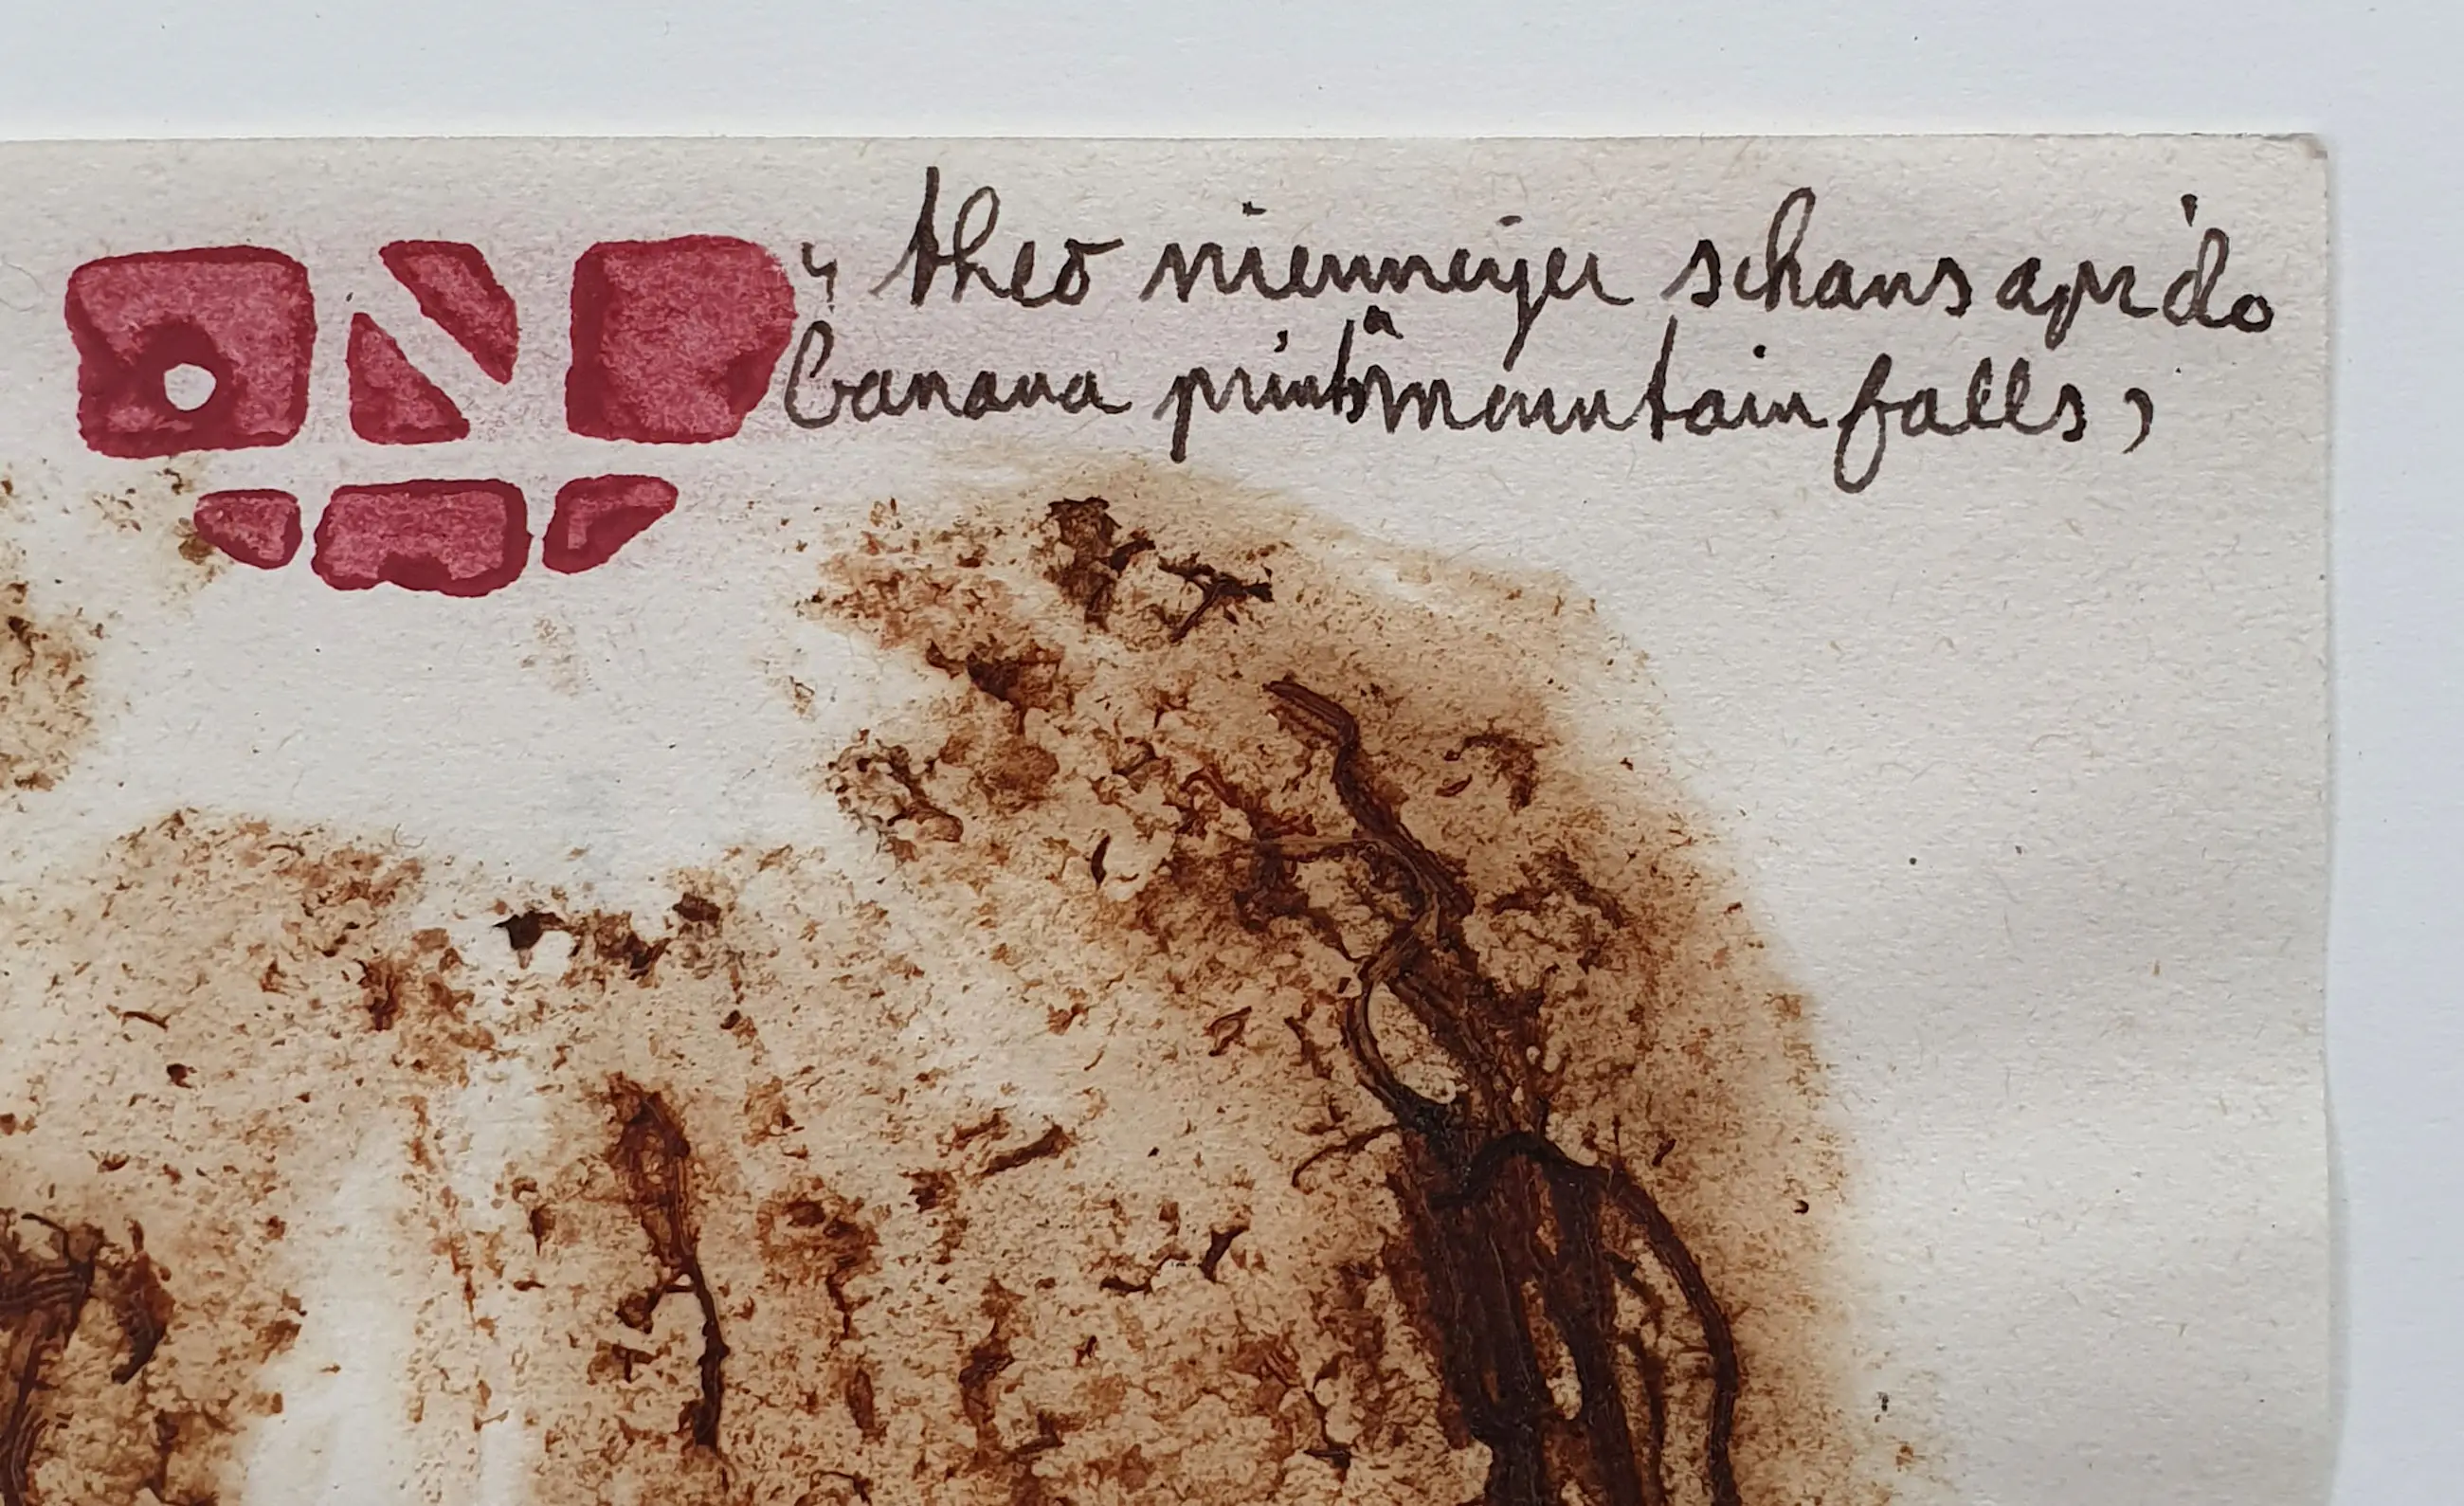 " theo niemeijer schans apr '20
banana prints a mountain falls,